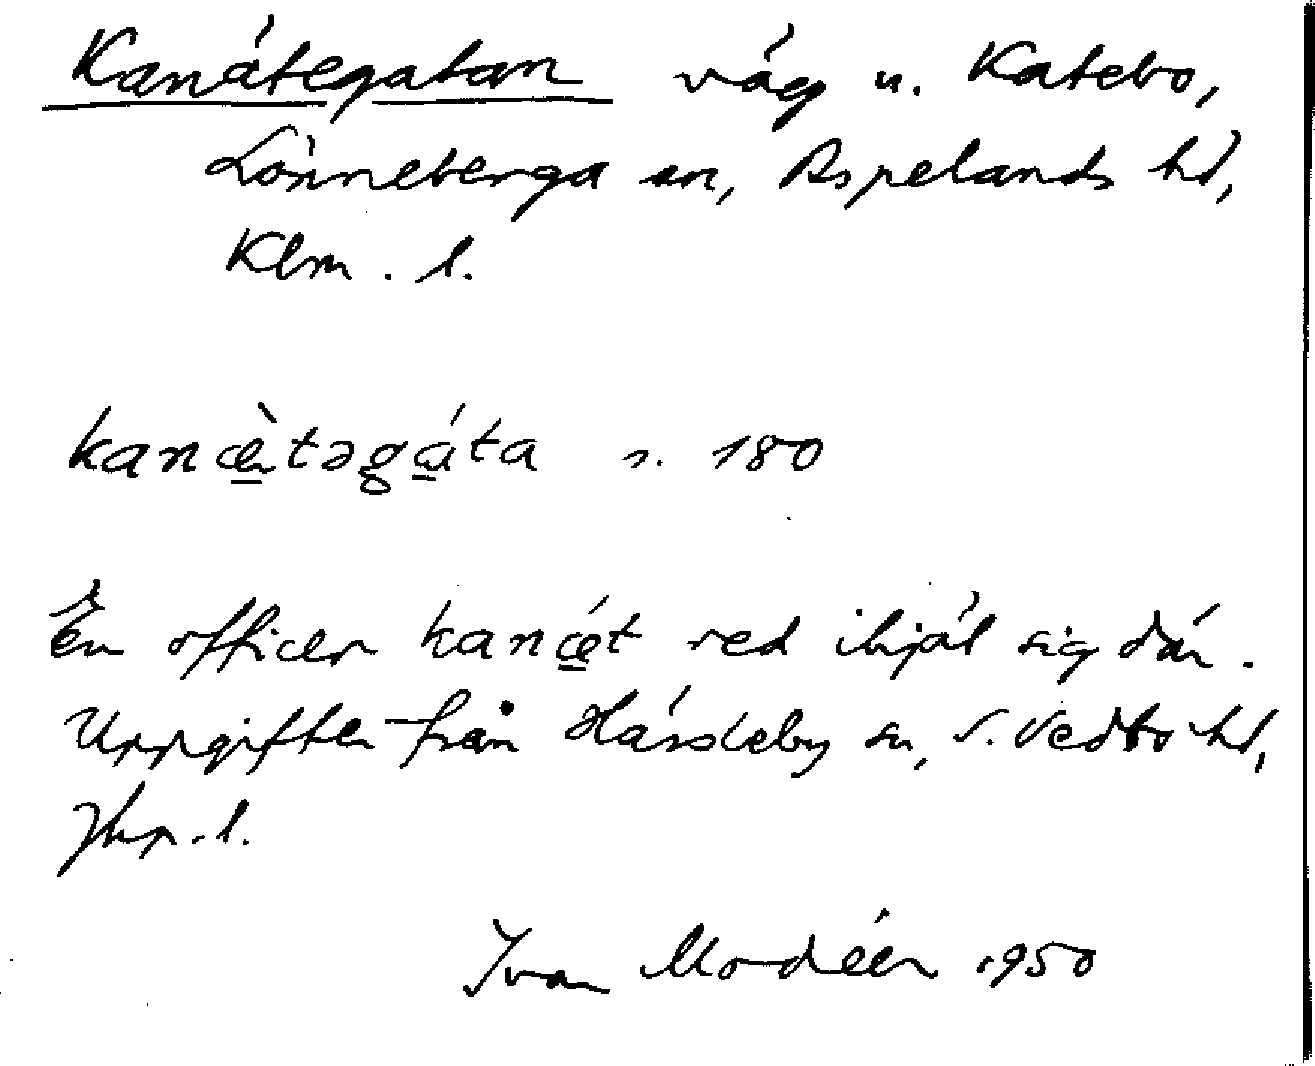 Kanätegatan väg n. Katebo,
Lönneberga sn, Aspelands hd,
Klm. l.
kanæ̀təgáta s. 180
En officer kanǽt red ihjäl sig där.
Uppgiften från Hässleby sn, S. Vedbo hd,
Jkp. l.
Ivar Modéer 1950